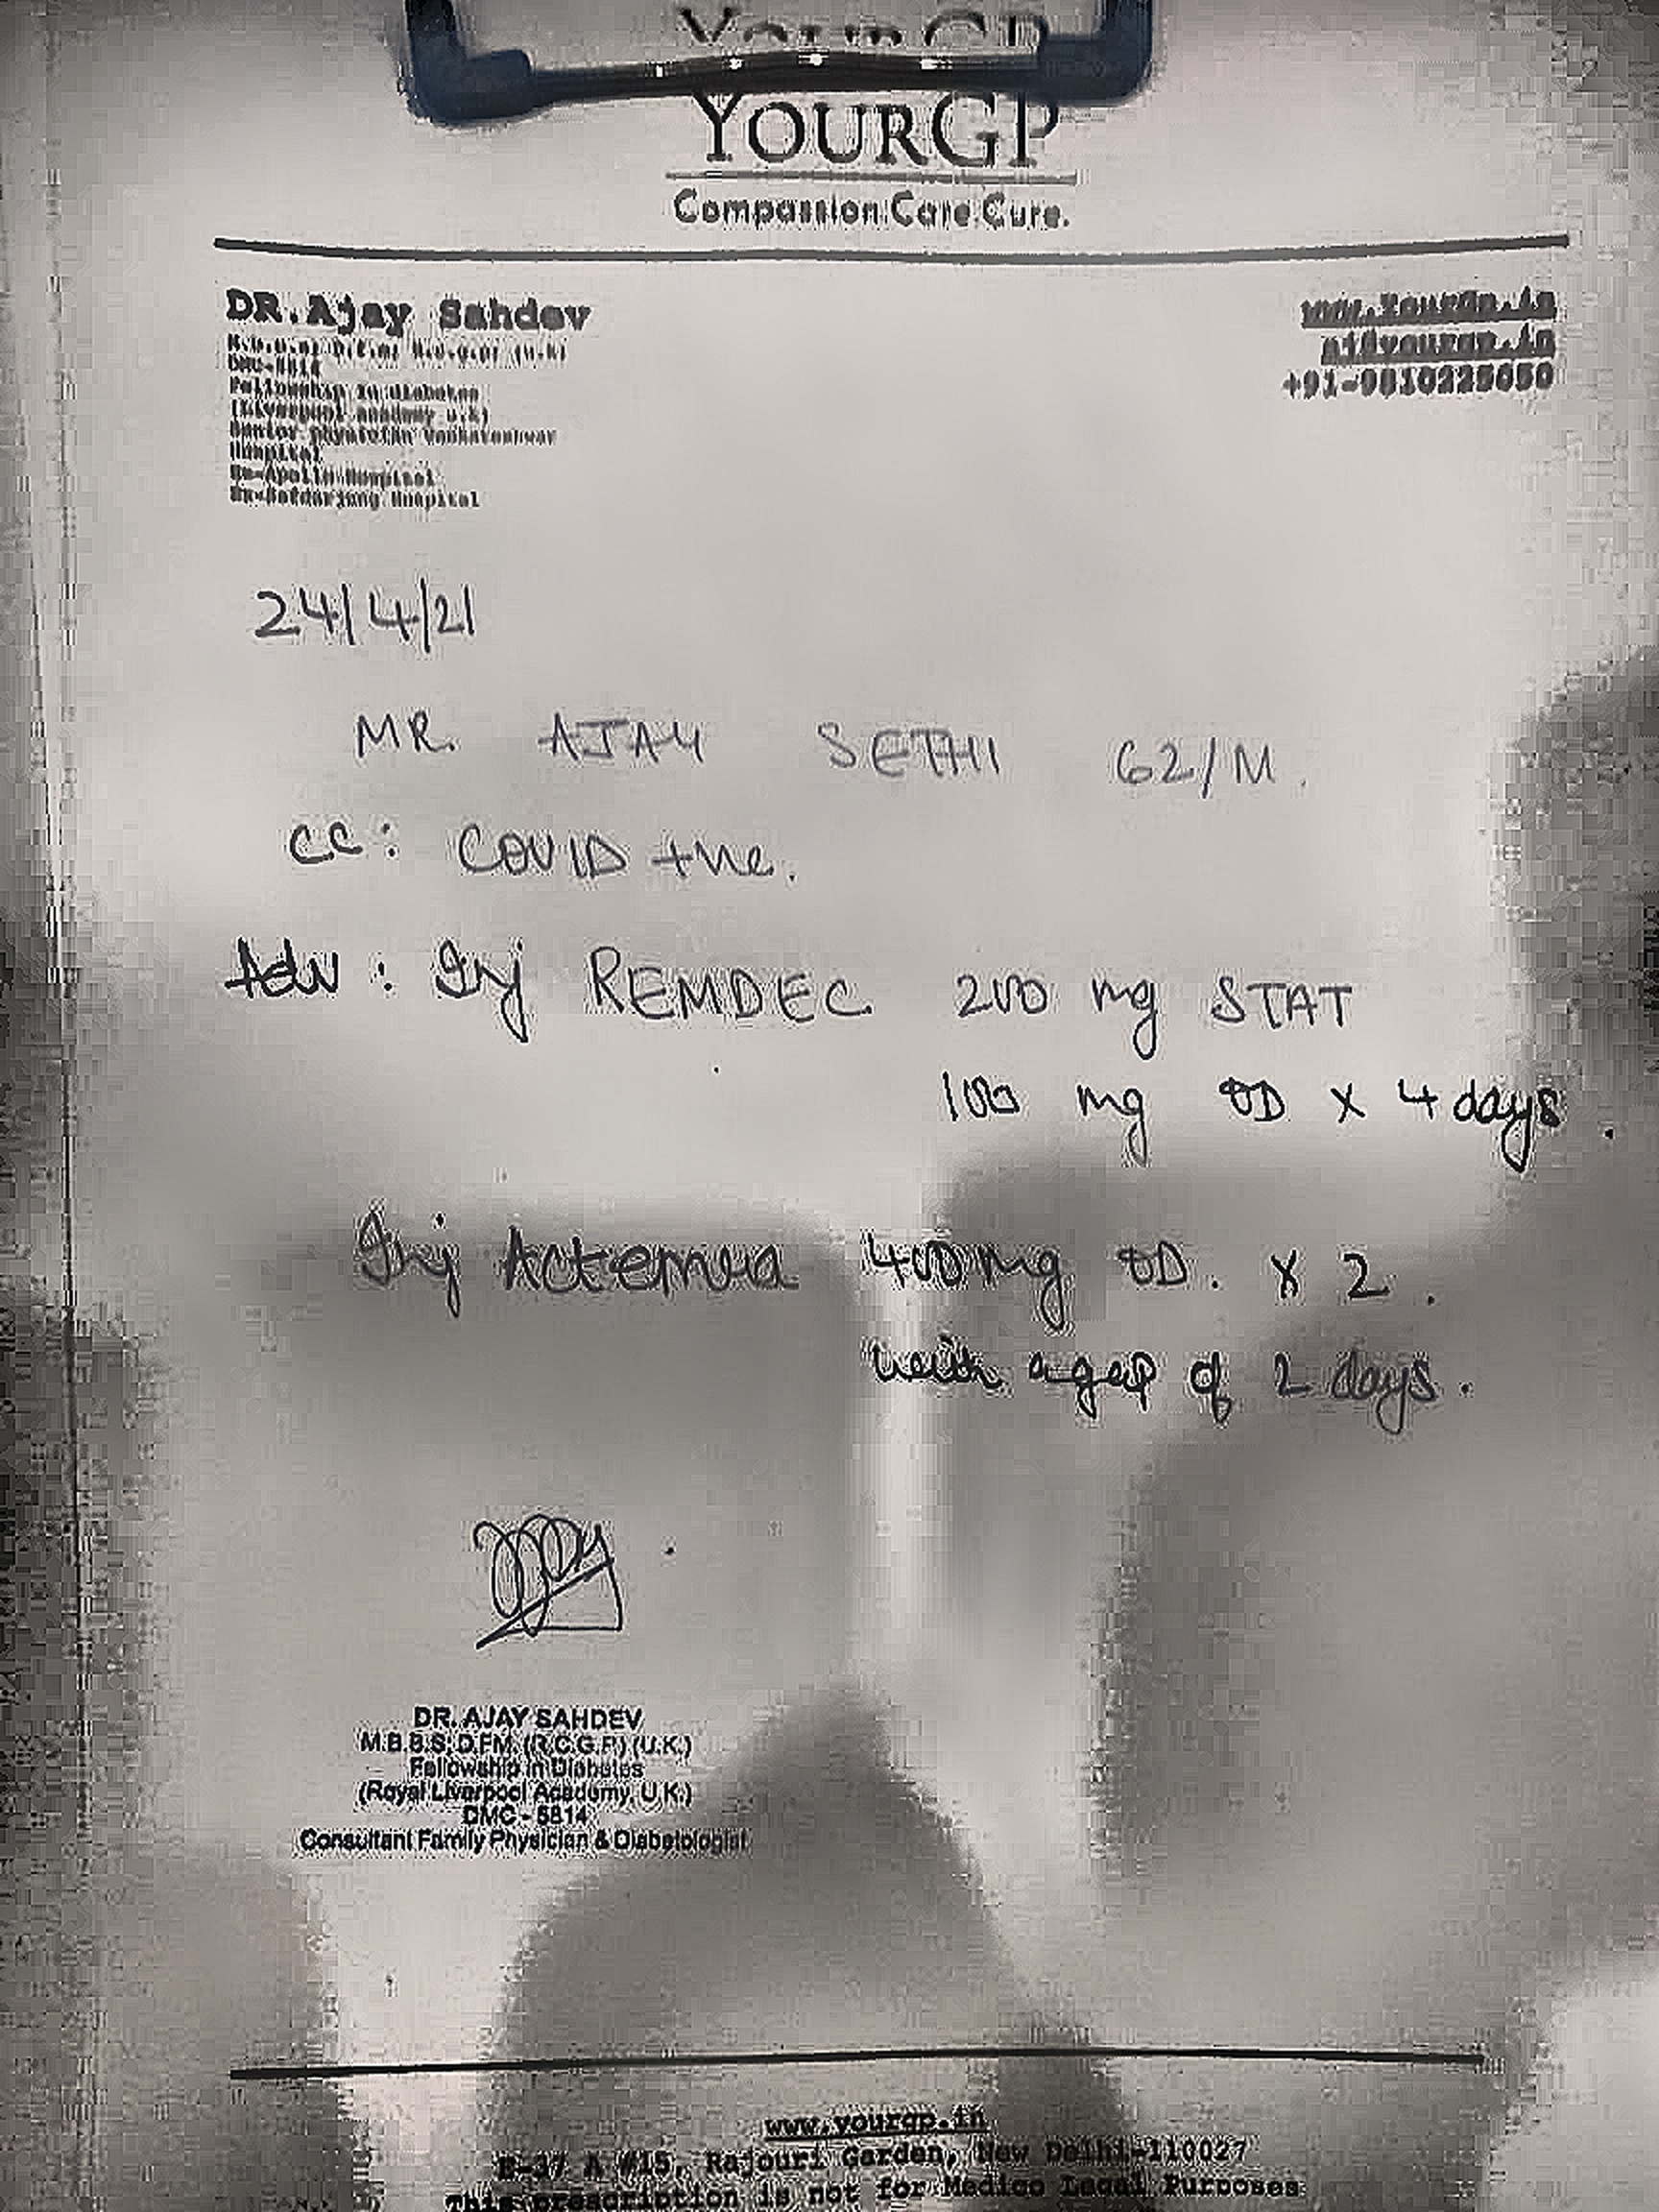 YourGP
YOURGP
Compassion.Care.Cure.
DR.Ajay Sahdev
www.YourGp.in
+91-9810225050
Fellowship in diabetes
Senior physician Venkateshwar
Hospital
Ex-Apollo Hospital
Ex-Safdarjung Hospital
24/4/21
MR. AJAY SETHI 62/M.
CC: COVID +ve.
Adv: Inj REMDEC 200 mg STAT
100 mg OD X 4 days.
Inj Actemra 400mg OD. X 2.
with a gap of 2 days.
DR. AJAY SAHDEV
M.B.B.S. D.F.M. (R.C.G.P.) (U.K.)
Fellowship in Diabetes
(Royal Liverpool Academy, U.K.)
DMC - 5814
Consultant Family Physician & Diabetologist
www.yourgp.in
E-37 A #15, Rajouri Garden, New Delhi-110027
This prescription is not for Medico Legal Purposes